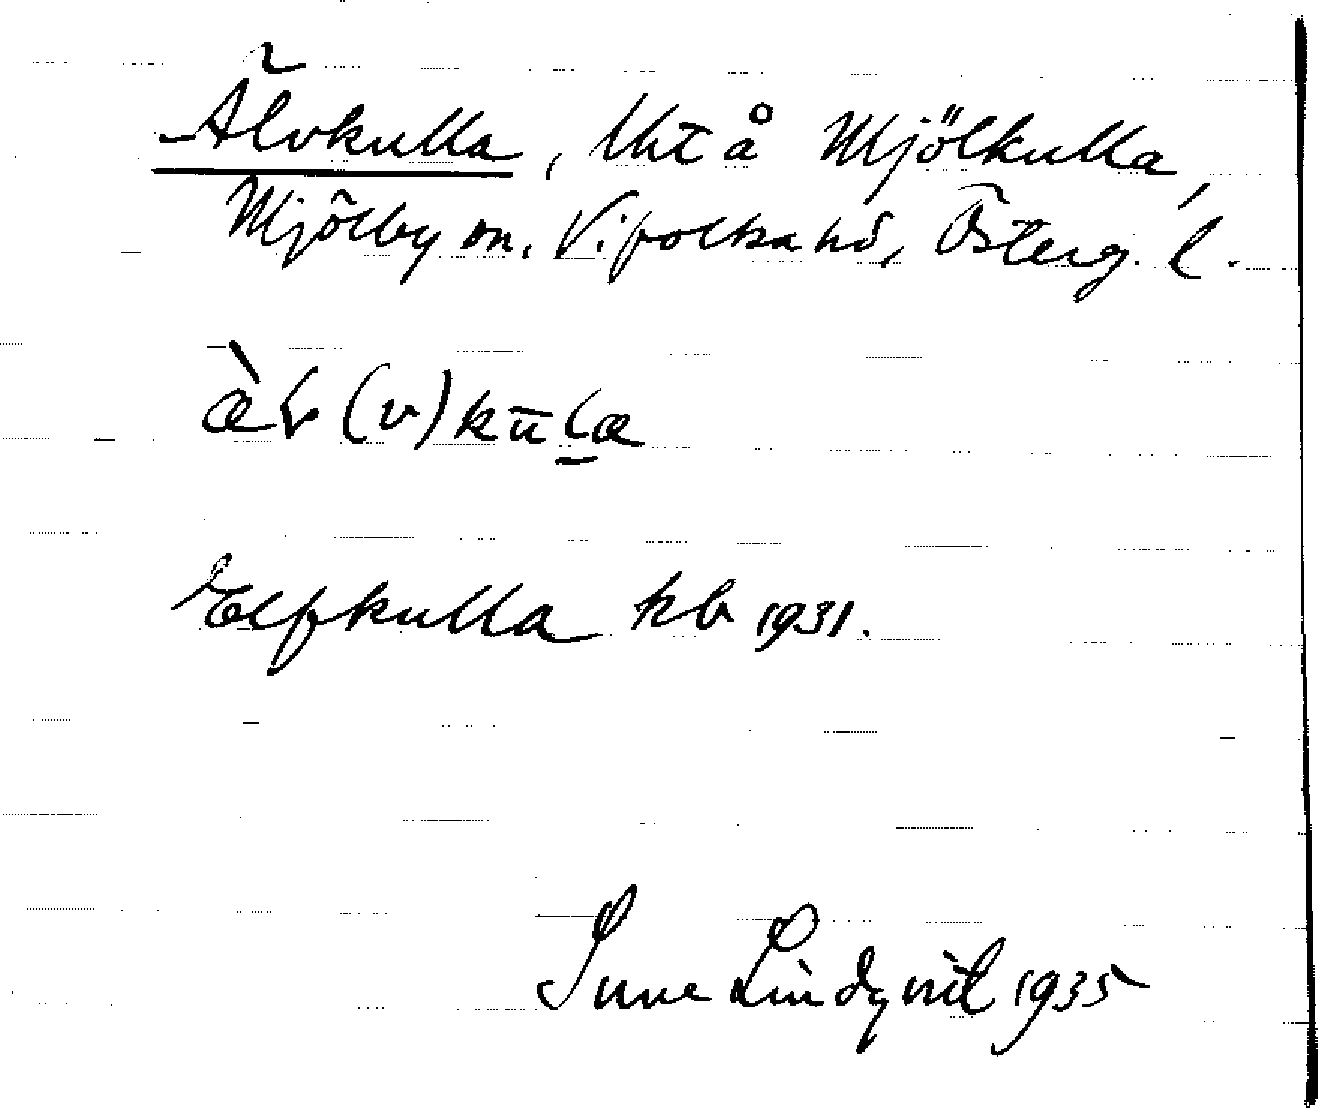 Älvkulla, lht å Mjölkulla,
Mjölby sn. Vifolka hd, Österg. l.
Elfkulla kb 1931.
Sune Lindqvist 1935